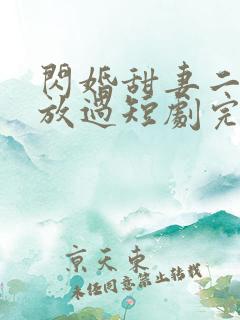 閃婚甜妻二
放過短劇完
京天東
未任同意禁止转載